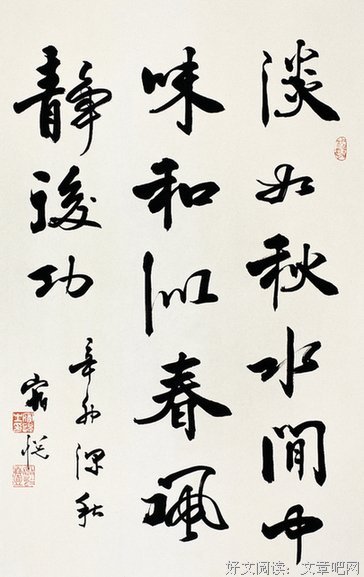 淡如秋水閒中
味和似春風
靜後功
辛卯深秋
好文阅读：文章吧网